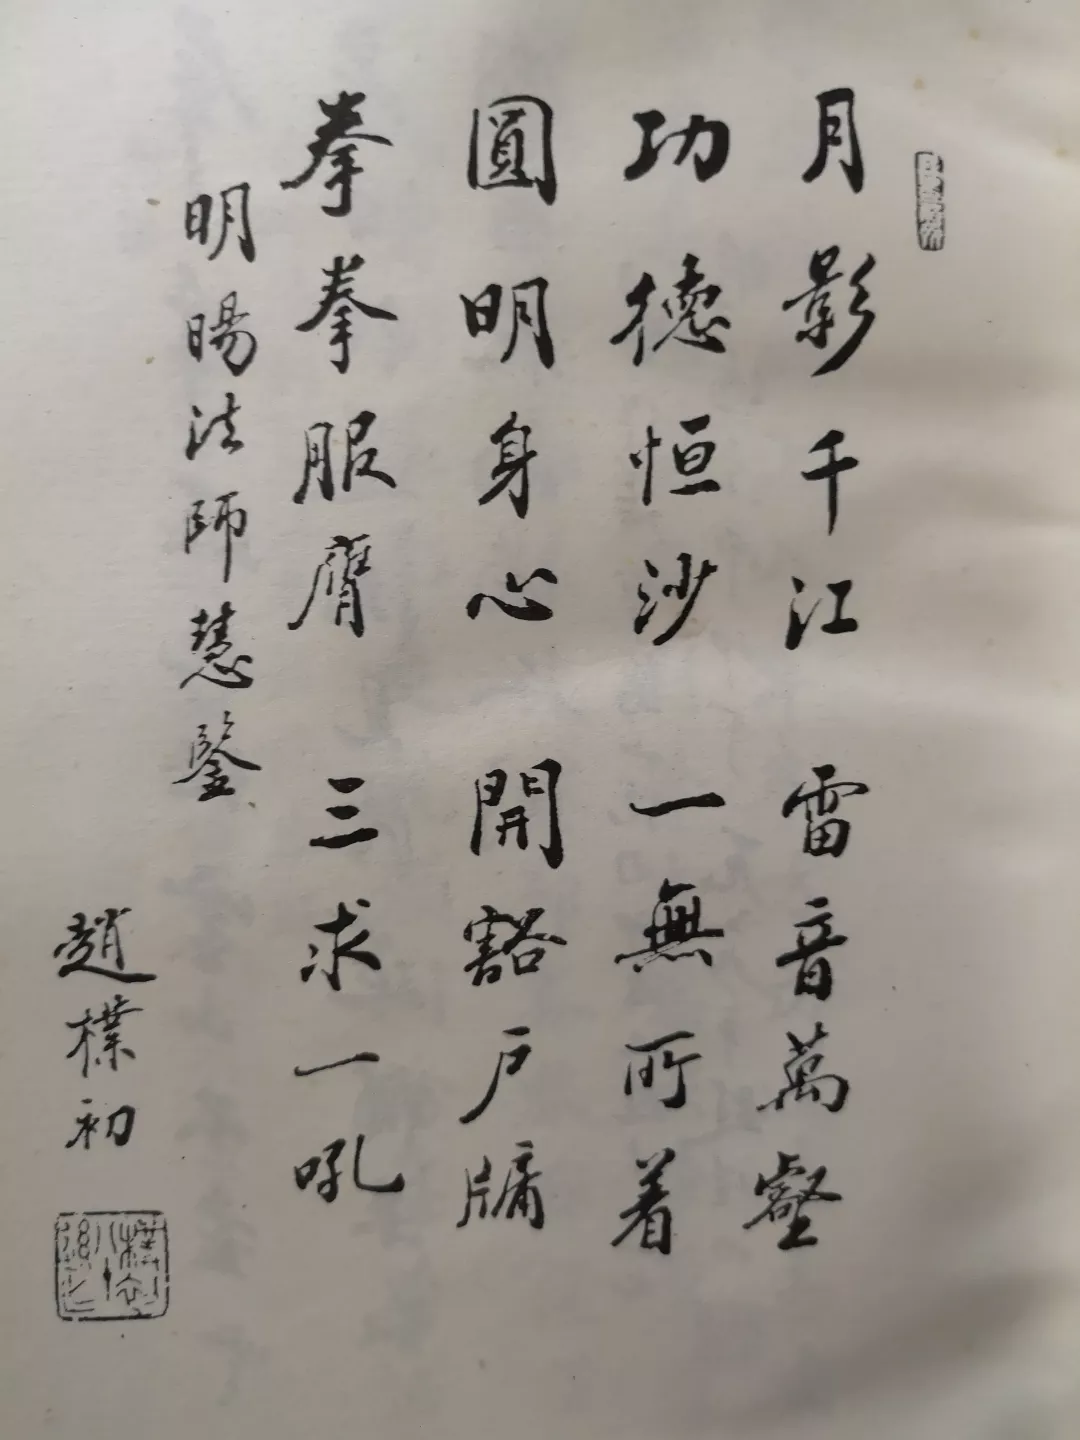 月影千江　雷音萬壑
功德恒沙　一無所着
圓明身心　開豁戶牖
拳拳服膺　三求一吼
明暘法師慧鑒
趙樸初